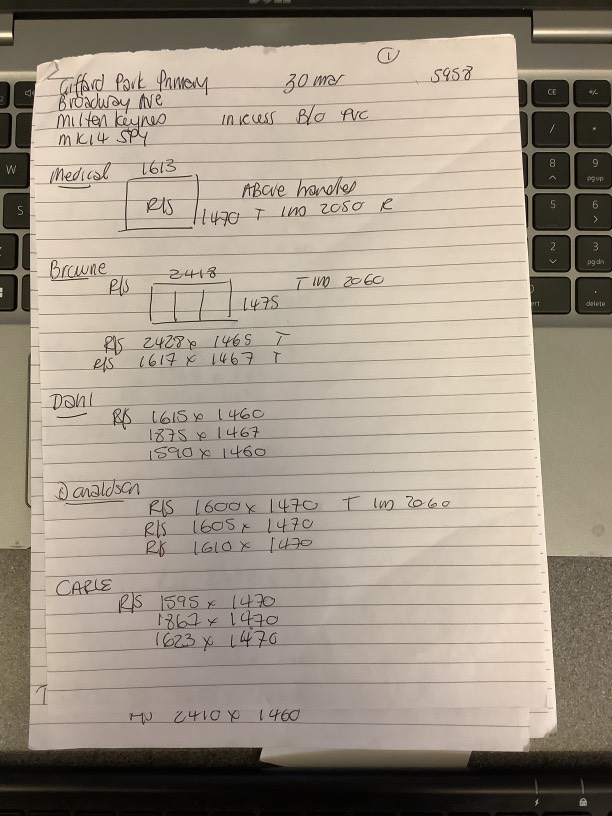 ①
Gifford Park Primary 30 mar 5958
Broadway Ave
Milton Keynes in recess B/O PVC
MK14 5PY
Medical 1613
R/S ABove handles
1470 T 1m 2050 R
Browne 2418
R/S T 1m 2060
1475
R/S 2428 x 1465 T
R/S 1617 x 1467 T
Dahl
R/S 1615 x 1460
1875 x 1467
1590 x 1460
Donaldson
R/S 1600 x 1470 T 1m 2060
R/S 1605 x 1470
R/S 1610 x 1470
CARLE
R/S 1595 x 1470
1867 x 1470
1623 x 1470
2410 x 1460